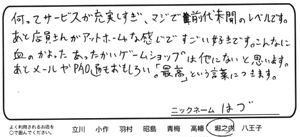 何ってサービスが充実しすぎ、マジで前代未聞のレベルです。
あと店員さんがアットホームな感じですごい好きです。こんなに
血のかよった、あったかいゲームショップは他にないと思います。
あとメールやPADもおもしろい。「最高」という言葉につきます。
ニックネーム はづ
よく利用されるお店を
○で囲んでください。
立川 小作 羽村 昭島 青梅 高幡 堀之内 八王子